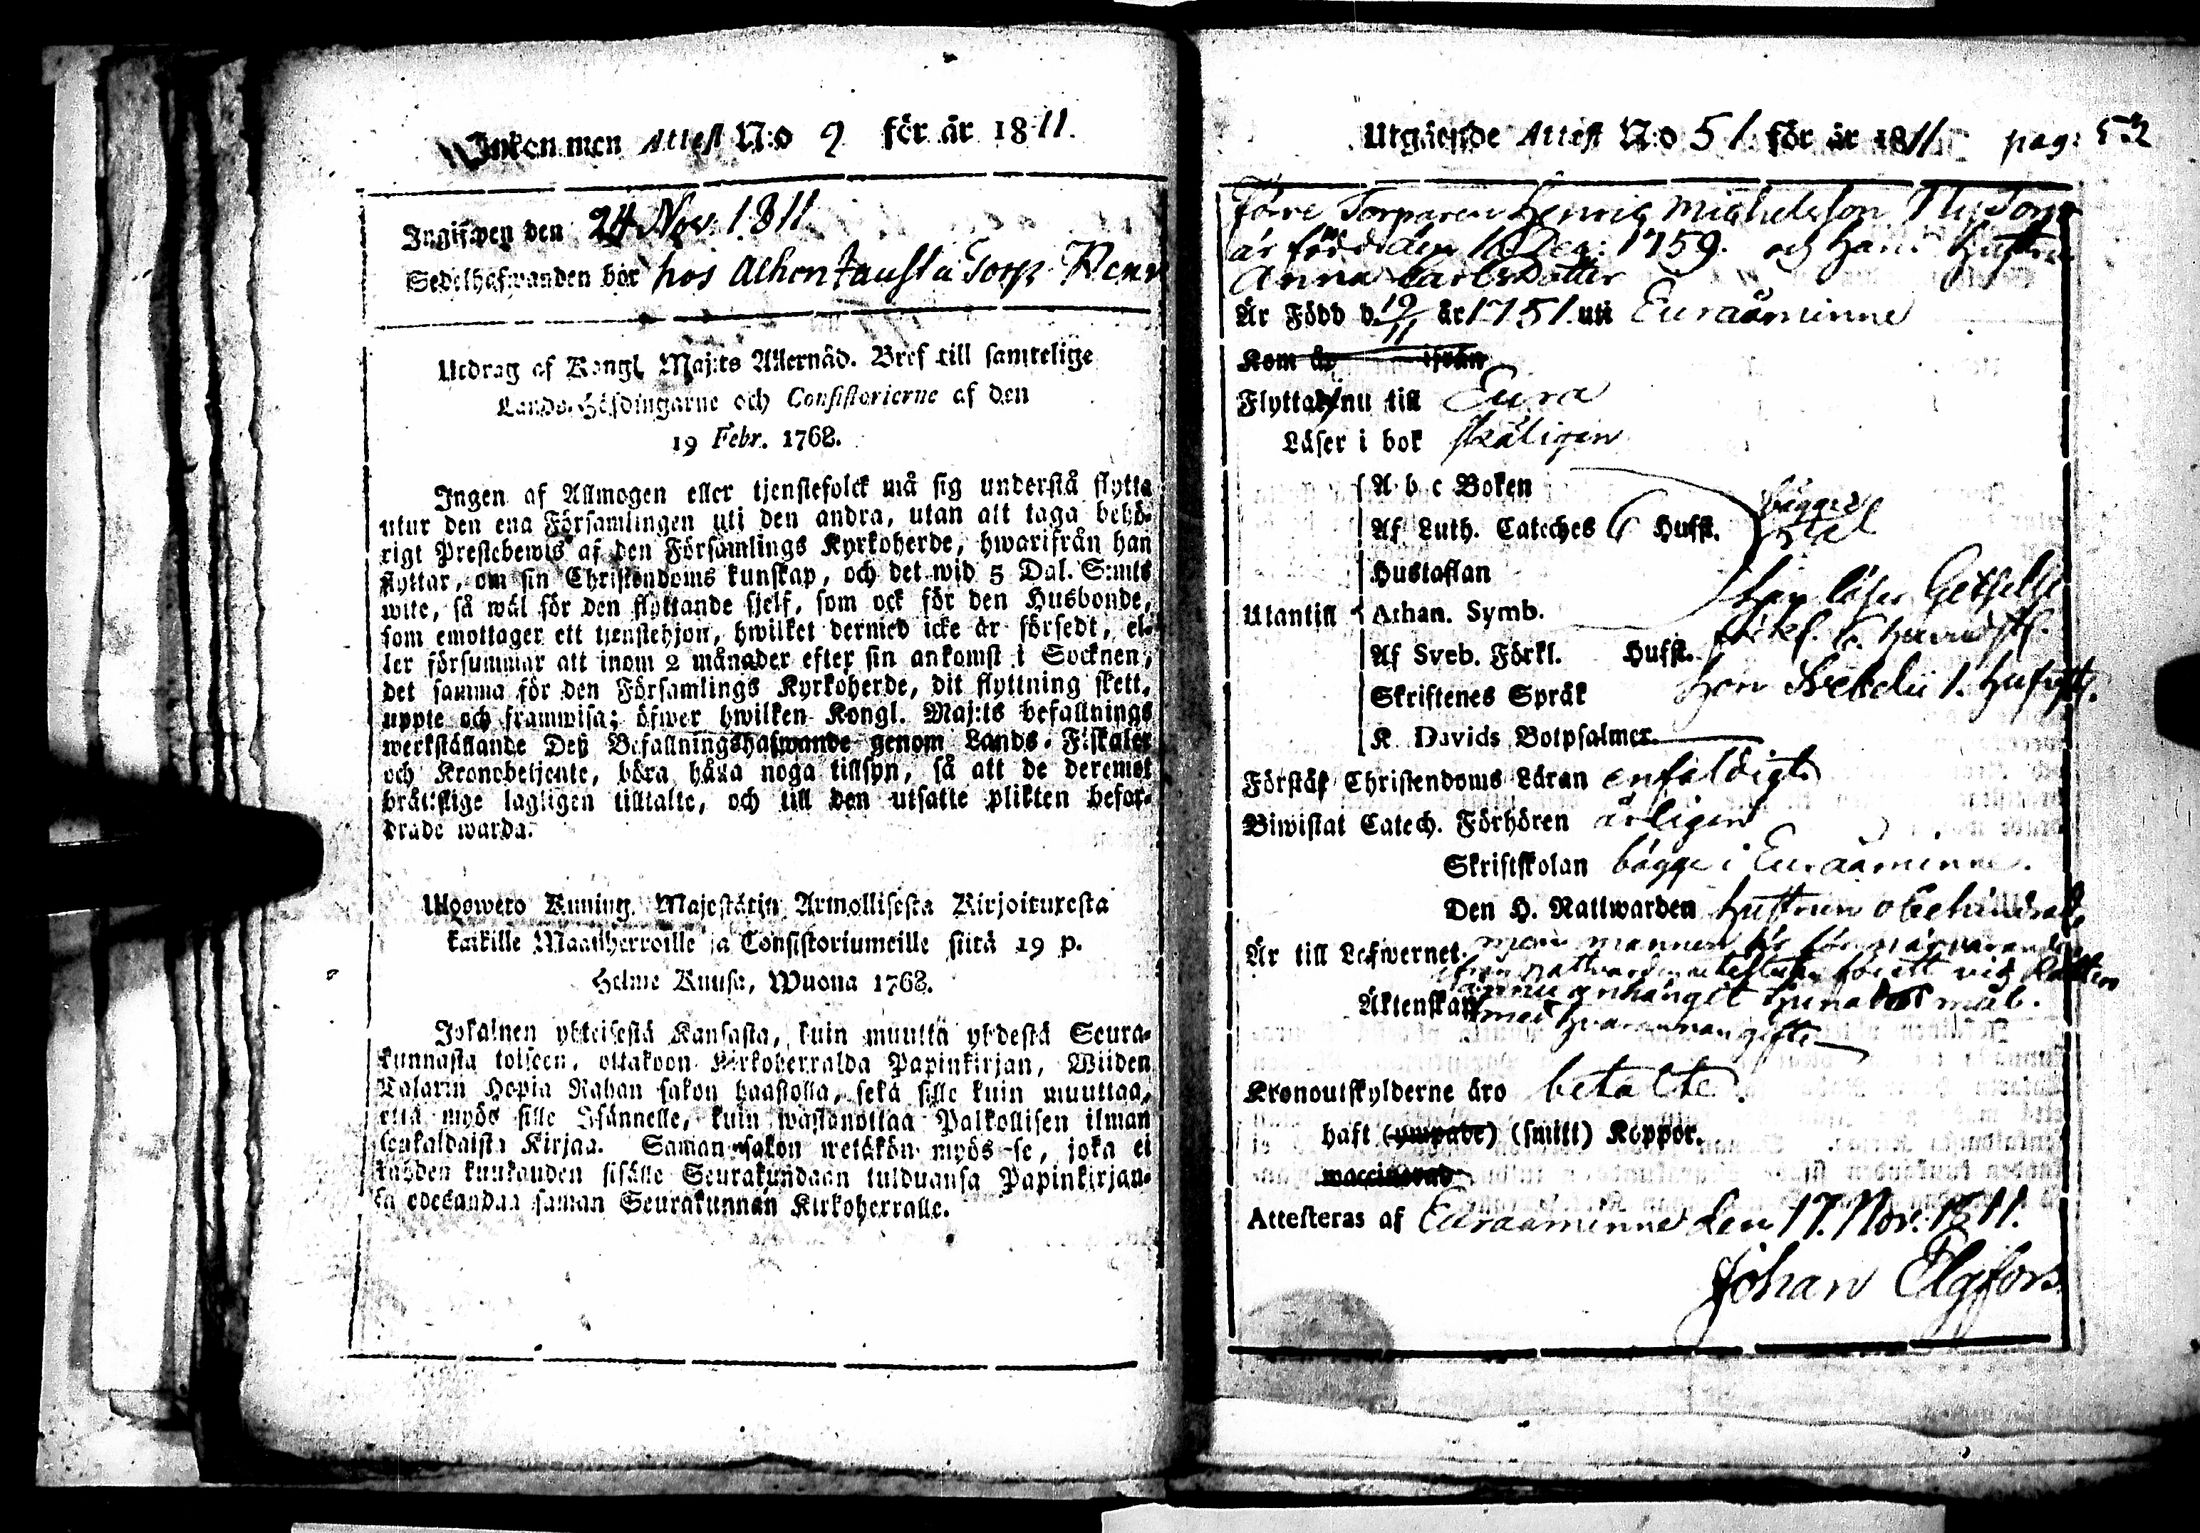 Inkommen Attest N:o 9 för år 1811.
Ingifwen den 24 Nov. 1811.
Sedelhafwanden bor hos Torp
Utdrag af Kongl. Maj:ts Allernåd. Bref till samtelige
Lands-Höfdingarne och Consistorierne af den
19 Febr. 1768.
Ingen af Allmogen eller tjenstefolck må sig understå flytta
utur den ena Församlingen uti den andra, utan att taga behö-
rigt Prestebewis af den Församlings Kyrkoherde, hwarifrån han
flyttar, om sin Christendoms kunskap, och det wid 5 Dal. S:mts
wite, så wäl för den flyttande sjelf, som ock för den Husbonde,
som emottager ett tjenstehjon, hwilket dermed icke är försedt, el-
ler försummar att inom 2 månader efter sin ankomst i Socknen,
det samma för den Församlings Kyrkoherde, dit flyttning skett,
uppte och framwisa; öfwer hwilken Kongl. Maj:ts befallnings
werkställande Deß Befallningshafwande genom Lands-Fiskaler
och Kronobetjente, böra hålla noga tillsyn, så att de deremot
brättslige lagligen tilltalte, och till den utsatte plikten befor-
drade warda.
Uloswero Kuning. Majestätin Armollisesta Kirjoituxesta
kaikille Maanherroille ja Consistoriumeille siitä 19 p.
Helme Kuusa, Wuona 1768.
Jokainen yhteisestä Kansasta, kuin muuttä yhdestä Seura-
kunnasta toiseen, ottakoon Kirkoherralda Papinkirjan, Wiiden
Talarin Hopia Rahan sakon haastolla, sekä sille kuin muuttaa,
että myös sille Isännelle, kuin wastanottaa Palkollisen ilman
senkaldaista Kirjaa. Saman sakon wetäkön myös se, joka ei
kahden kuukauden sisälle Seurakundaan tulduansa Papinkirjan-
sa edesandaa saman Seurakunnan Kirkoherralle.
Utgåensde Attest N:o 51 för år 1811 pag: 52
Förre Torparen Henric Michelsson NyTorp
är född den 16 Dec: 1759. och hans hustru
Anna CarlsDotter
Är Född d. 19/11 år 1751. uti Euraåminne
Kom år ifrån
Flytta nu till Eura
Läser i bok skäligen
A b c Boken
Af Luth. Cateches 6 Hufst. bägge
Hustaflan
Utantill Athan. Symb. Han läser
Af Sveb. Förkl. Hufst.
Skriftenes Språk Hon Svebelii 1. Hufvst.
K. Davids Botpsalmer.
Förstår Christendoms Läran enfaldigt
Biwistat Catech. Förhören årligen
Skriftskolan bägge i Euraåminne.
Den H. Nattwarden hustrun obehindrad,
Är till Lefwernet. men mannen är för närvarande
ifrån nattvarden utesluten för ett vid Rätten
ännu anhängit mål.
Äktenskap med hvarannan gifte
Kronoutskylderne äro betalte.
haft (ympade) (smitt) Koppor.
waccinerad
Attesteras af Euraaminne den 17. Nov. 1811.
Johan Elgfors